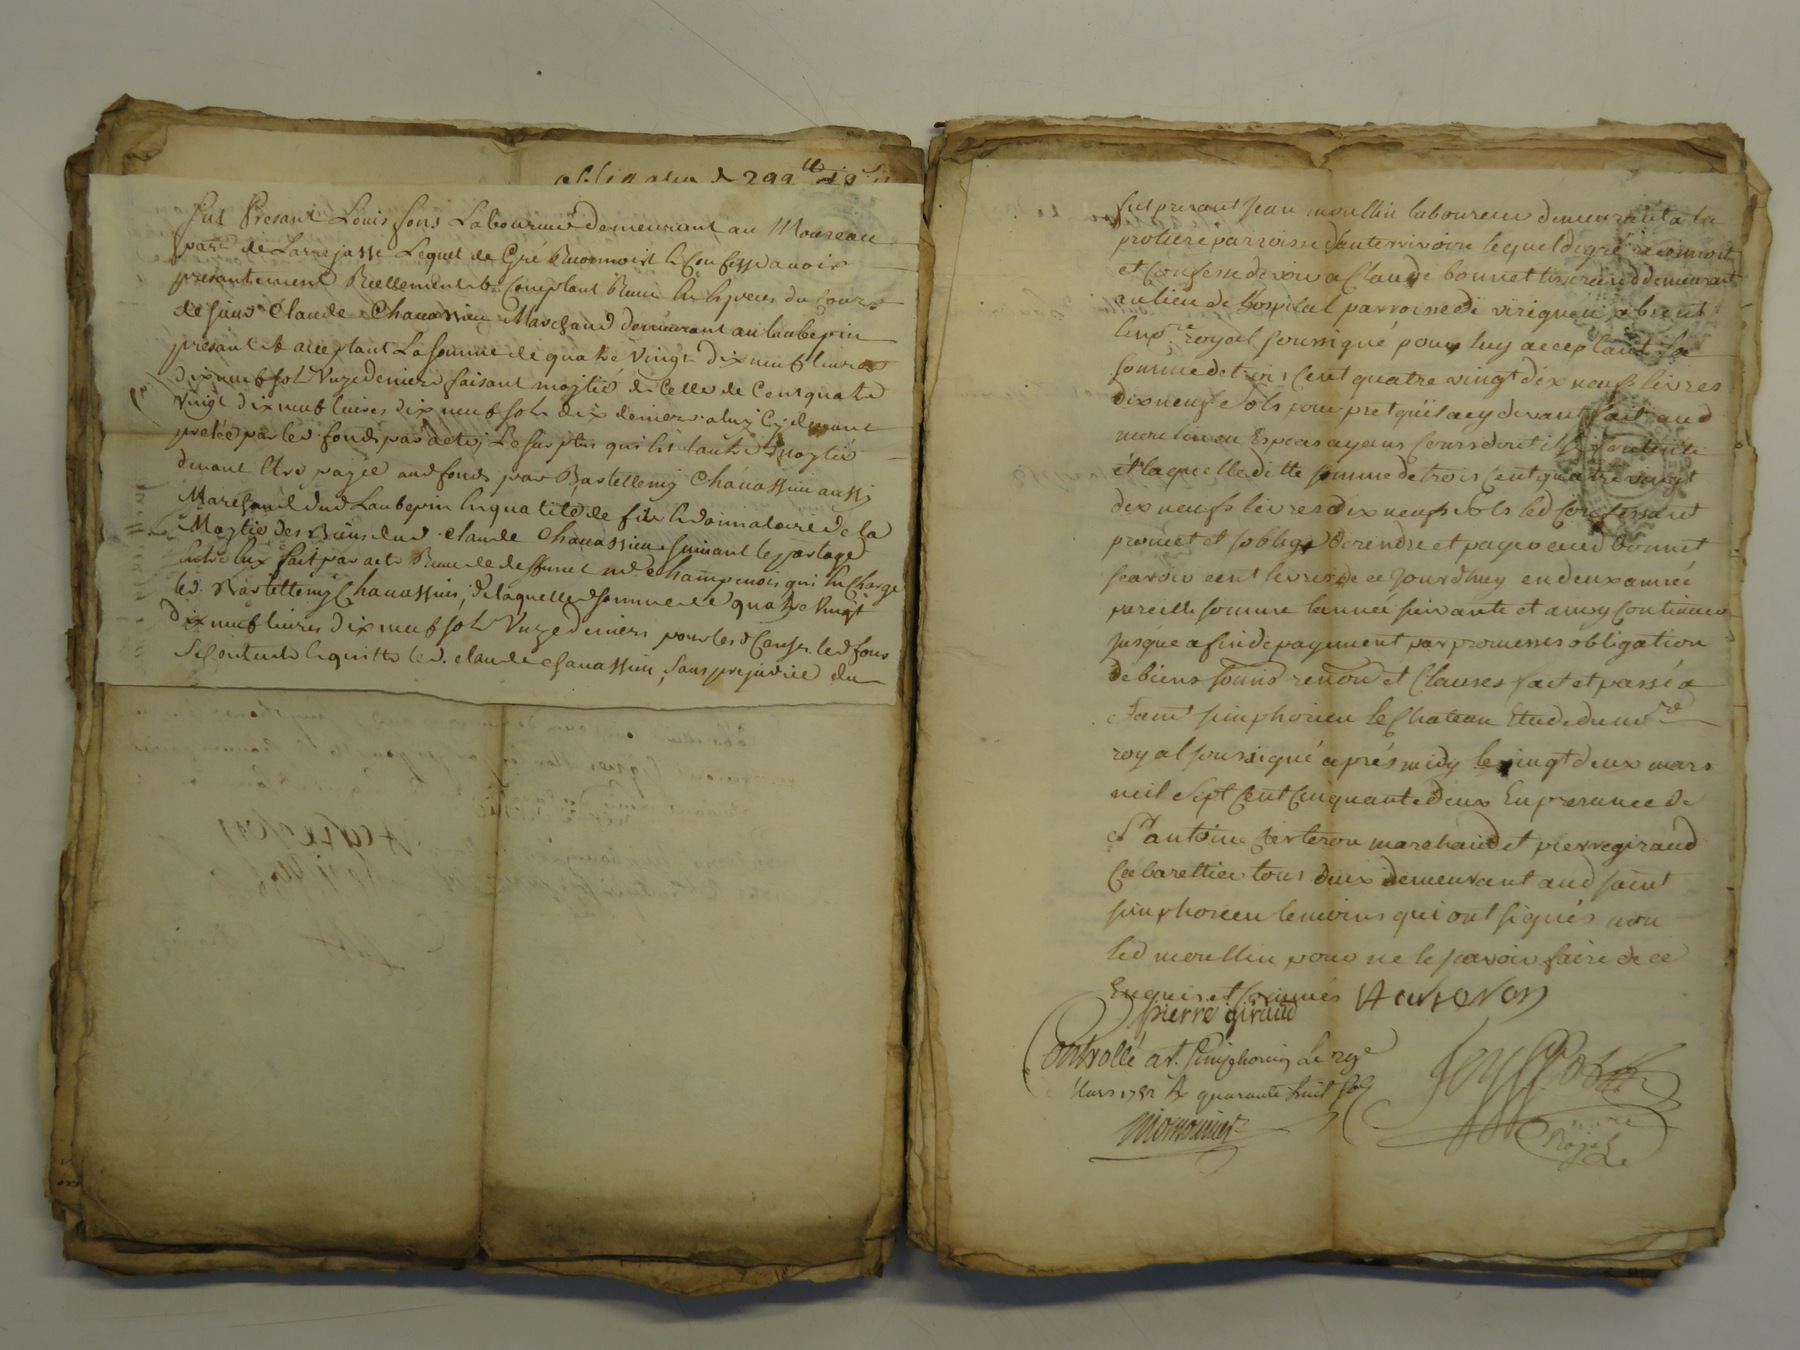 obligation de 299 lt 19 s
Fut Presant Louis fons Laboureur demeurant au Moureau
parr. de Larrajasse Lequel de Gré Reconnoist & Confesse avoir
presantement Reellement & Comptant Receu En Especes du Cours
de sieur Claude Chavassieu Marchand demeurant au laubepin
presant & acceptant La somme de quatre vingt dix neuf livres
dix neuf sols Unze deniers faisant moytié de Celle de Cent quatre
vingt dix neuf livres dix neuf sols dix deniers a luy Cy devant
pretée par led. fonds par acte; Le surplus qui Est lautre Moytié
devant Etre payée aud fonds par Bartellemy Chavassieu aussy
Marchand dud Laubepin En qualité de fils & donnataire de la
Moytié des Biens dud. claude Chavassieu suivant le partage
Entre Eux fait par acte Receu de deffunct me. champenois qui En Charge
led. Bartellemy Chavassieu; de laquelle somme de quatre vingt
dix neuf livres dix neuf sols Unze deniers pour les d Causes led fons
se Contente & quitte led. claude chavassieu, sans prejudice du
fut presant Jean moullin laboureur demeurant a la
proliere parroisse d'auterrivoire lequel de gré reconnoit
et Confesse devoir a Claude bonnet tisserand demeurant
au lieu de Lhospital parroisse de virigneu absent
le nore royal soussigné pour luy acceptant la
somme de trois Cent quatre vingt dix neufs livres
dix neufs sols pour pret qu'il a cy devant fait aud
moulin en Especes ayans Cours dont il se Contente
et laquelle ditte somme de trois Cent quatre vingt
dix neufs livres dix neufs sols led Confessant
promet et soblige de rendre et payer aud bonnet
scavoir cent livres de ce Jourdhuy en deux année
pareille somme lannée suivante et ainsy Continuer
Jusque a fin de payement par promesses obligation
de biens soumis renon et Clauses fait et passé a
saint simphorien le Chateau Etude du nore
royal soussigné aprés midy le vingt deux mars
mil sept Cent Cinquante deux En presance de
sr antoine Verteron marchand et pierre giraud
Cabarettier tous deux demeurant aud saint
simphorien temoins qui ont signés non
led moullin pour ne le scavoir faire de ce
Enquis et sommés
pierre giraud
Controllé a st. Simphorien Le 29e
Mars 1752 R quarante huit sols